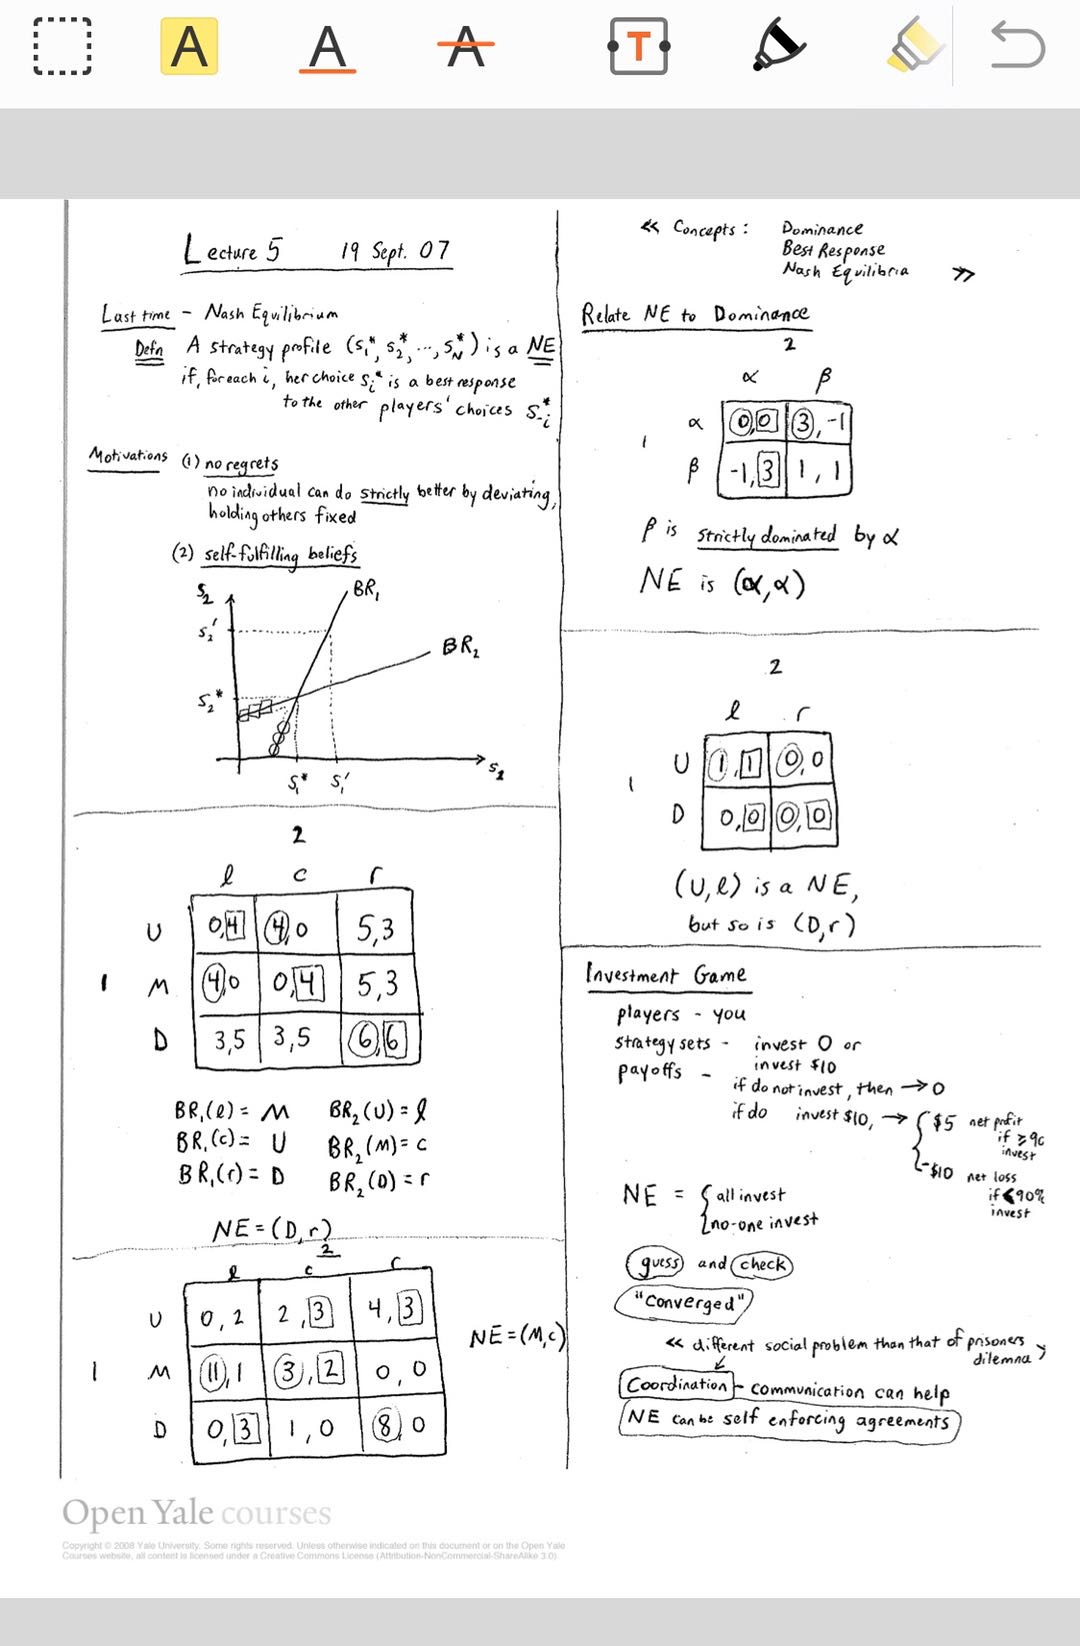 A A A T
Lecture 5 19 Sept. 07
Last time - Nash Equilibrium
Defn A strategy profile (s₁*, s₂*, ..., s_N*) is a NE
if, for each i, her choice sᵢ* is a best response
to the other players' choices s₋ᵢ*
Motivations (1) no regrets
no individual can do strictly better by deviating,
holding others fixed
(2) self-fulfilling beliefs
S₂
BR₁
S₂'
BR₂
S₂*
S₁* S₁' S₁
2
l c r
U 0,4 4,0 5,3
1 M 4,0 0,4 5,3
D 3,5 3,5 6,6
BR₁(l) = M BR₂(U) = l
BR₁(c) = U BR₂(M) = c
BR₁(r) = D BR₂(D) = r
NE = (D,r)
2
l c r
U 0,2 2,3 4,3
1 M 11,1 3,2 0,0
D 0,3 1,0 8,0
NE = (M,c)
<< Concepts: Dominance
Best Response
Nash Equilibria >>
Relate NE to Dominance
2
α β
1 α 0,0 3,-1
β -1,3 1,1
β is strictly dominated by α
NE is (α,α)
2
l r
1 U 1,1 0,0
D 0,0 0,0
(U,l) is a NE,
but so is (D,r)
Investment Game
players - you
strategy sets - invest 0 or
invest $10
payoffs -
if do not invest, then → 0
if do invest $10, → { $5 net profit
if ≥ 90
invest
-$10 net loss
if < 90%
invest
NE = { all invest
no-one invest
guess and check
"converged"
<< different social problem than that of prisoners
dilemma >
Coordination - communication can help
NE can be self enforcing agreements
Open Yale courses
Copyright © 2008 Yale University. Some rights reserved. Unless otherwise indicated on this document or on the Open Yale
Courses website, all content is licensed under a Creative Commons License (Attribution-NonCommercial-ShareAlike 3.0).